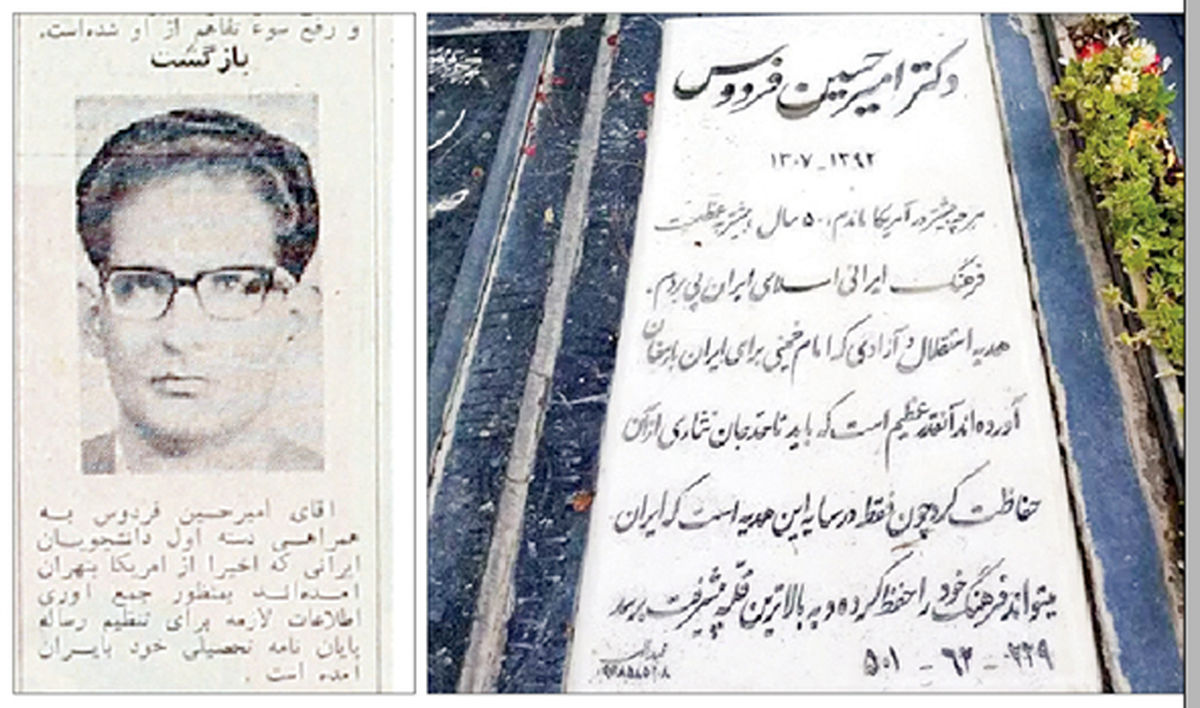 و رفع سوء تفاهم از او شده‌است.
بازگشت
اقای امیرحسین فردوس به
همراهی دسته اول دانشجویان
ایرانی که اخیرا از امریکا بتهران
امده‌اند بمنظور جمع اوری
اطلاعات لازمه برای تنظیم رساله
پایان نامه تحصیلی خود بایران
امده است .
دکتر امیرحسین فردوس
۱۳۰۷-۱۳۹۲
هر چه بیشتر در آمریکا ماندم، ۵۰ سال، بیشتر به عظمت
فرهنگ ایرانی اسلامی ایران پی بردم.
هدیه استقلال و آزادی که امام خمینی برای ایران بارمغان
آورده‌اند آنقدر عظیم است که باید تا حد جان نثاری از آن
حفاظت کرد چون فقط در سایه این هدیه است که ایران
میتواند فرهنگ خود را حفظ کرده و به بالاترین قله پیشرفت برسد
۵۰۱ - ۶۲ - ۲۲۹